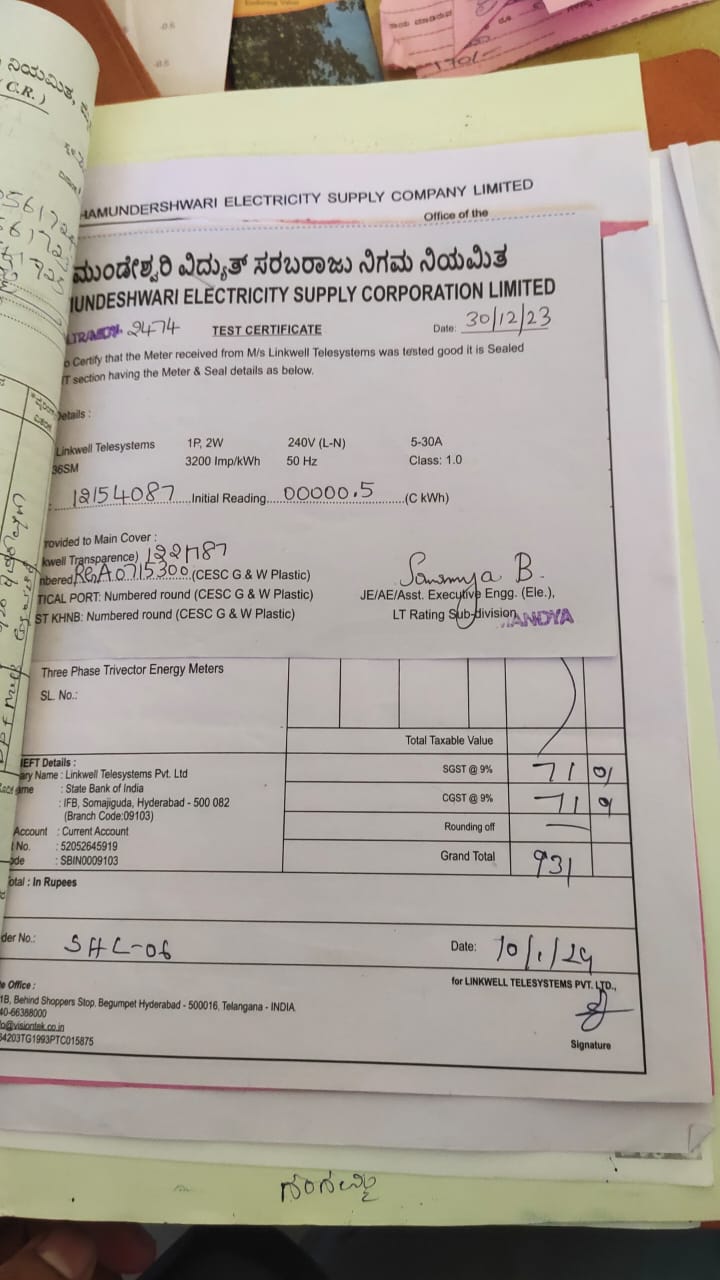 ನಿಯಮಿತ,
(C.R.)
HAMUNDERSHWARI ELECTRICITY SUPPLY COMPANY LIMITED
Office of the
ಮುಂಡೇಶ್ವರಿ ವಿದ್ಯುತ್ ಸರಬರಾಜು ನಿಗಮ ನಿಯಮಿತ
UNDESHWARI ELECTRICITY SUPPLY CORPORATION LIMITED
2474 TEST CERTIFICATE Date: 30/12/23
o Certify that the Meter received from M/s Linkwell Telesystems was tested good it is Sealed
T section having the Meter & Seal details as below.
Details :
Linkwell Telesystems 1P, 2W 240V (L-N) 5-30A
36SM 3200 Imp/kWh 50 Hz Class: 1.0
: 12154087 Initial Reading 00000.5 (C kWh)
rovided to Main Cover :
kwell Transparence)
nbered, (CESC G & W Plastic)
TICAL PORT: Numbered round (CESC G & W Plastic)
ST KHNB: Numbered round (CESC G & W Plastic)
Sowmya B.
JE/AE/Asst. Executive Engg. (Ele.),
LT Rating Sub-division, MANDYA
Three Phase Trivector Energy Meters
SL. No.:
Total Taxable Value
SGST @ 9% 71 01
CGST @ 9% 71
Rounding off —
Grand Total 931
IEFT Details :
ary Name : Linkwell Telesystems Pvt. Ltd
ame : State Bank of India
: IFB, Somajiguda, Hyderabad - 500 082
(Branch Code:09103)
Account : Current Account
t No. : 52052645919
ode : SBIN0009103
otal : In Rupees
der No.: SHL-06
Date: 10/1/24
for LINKWELL TELESYSTEMS PVT. LTD.,
Signature
e Office :
1B, Behind Shoppers Stop, Begumpet Hyderabad - 500016, Telangana - INDIA.
40-66388000
fo@visiontek.co.in
64203TG1993PTC015875